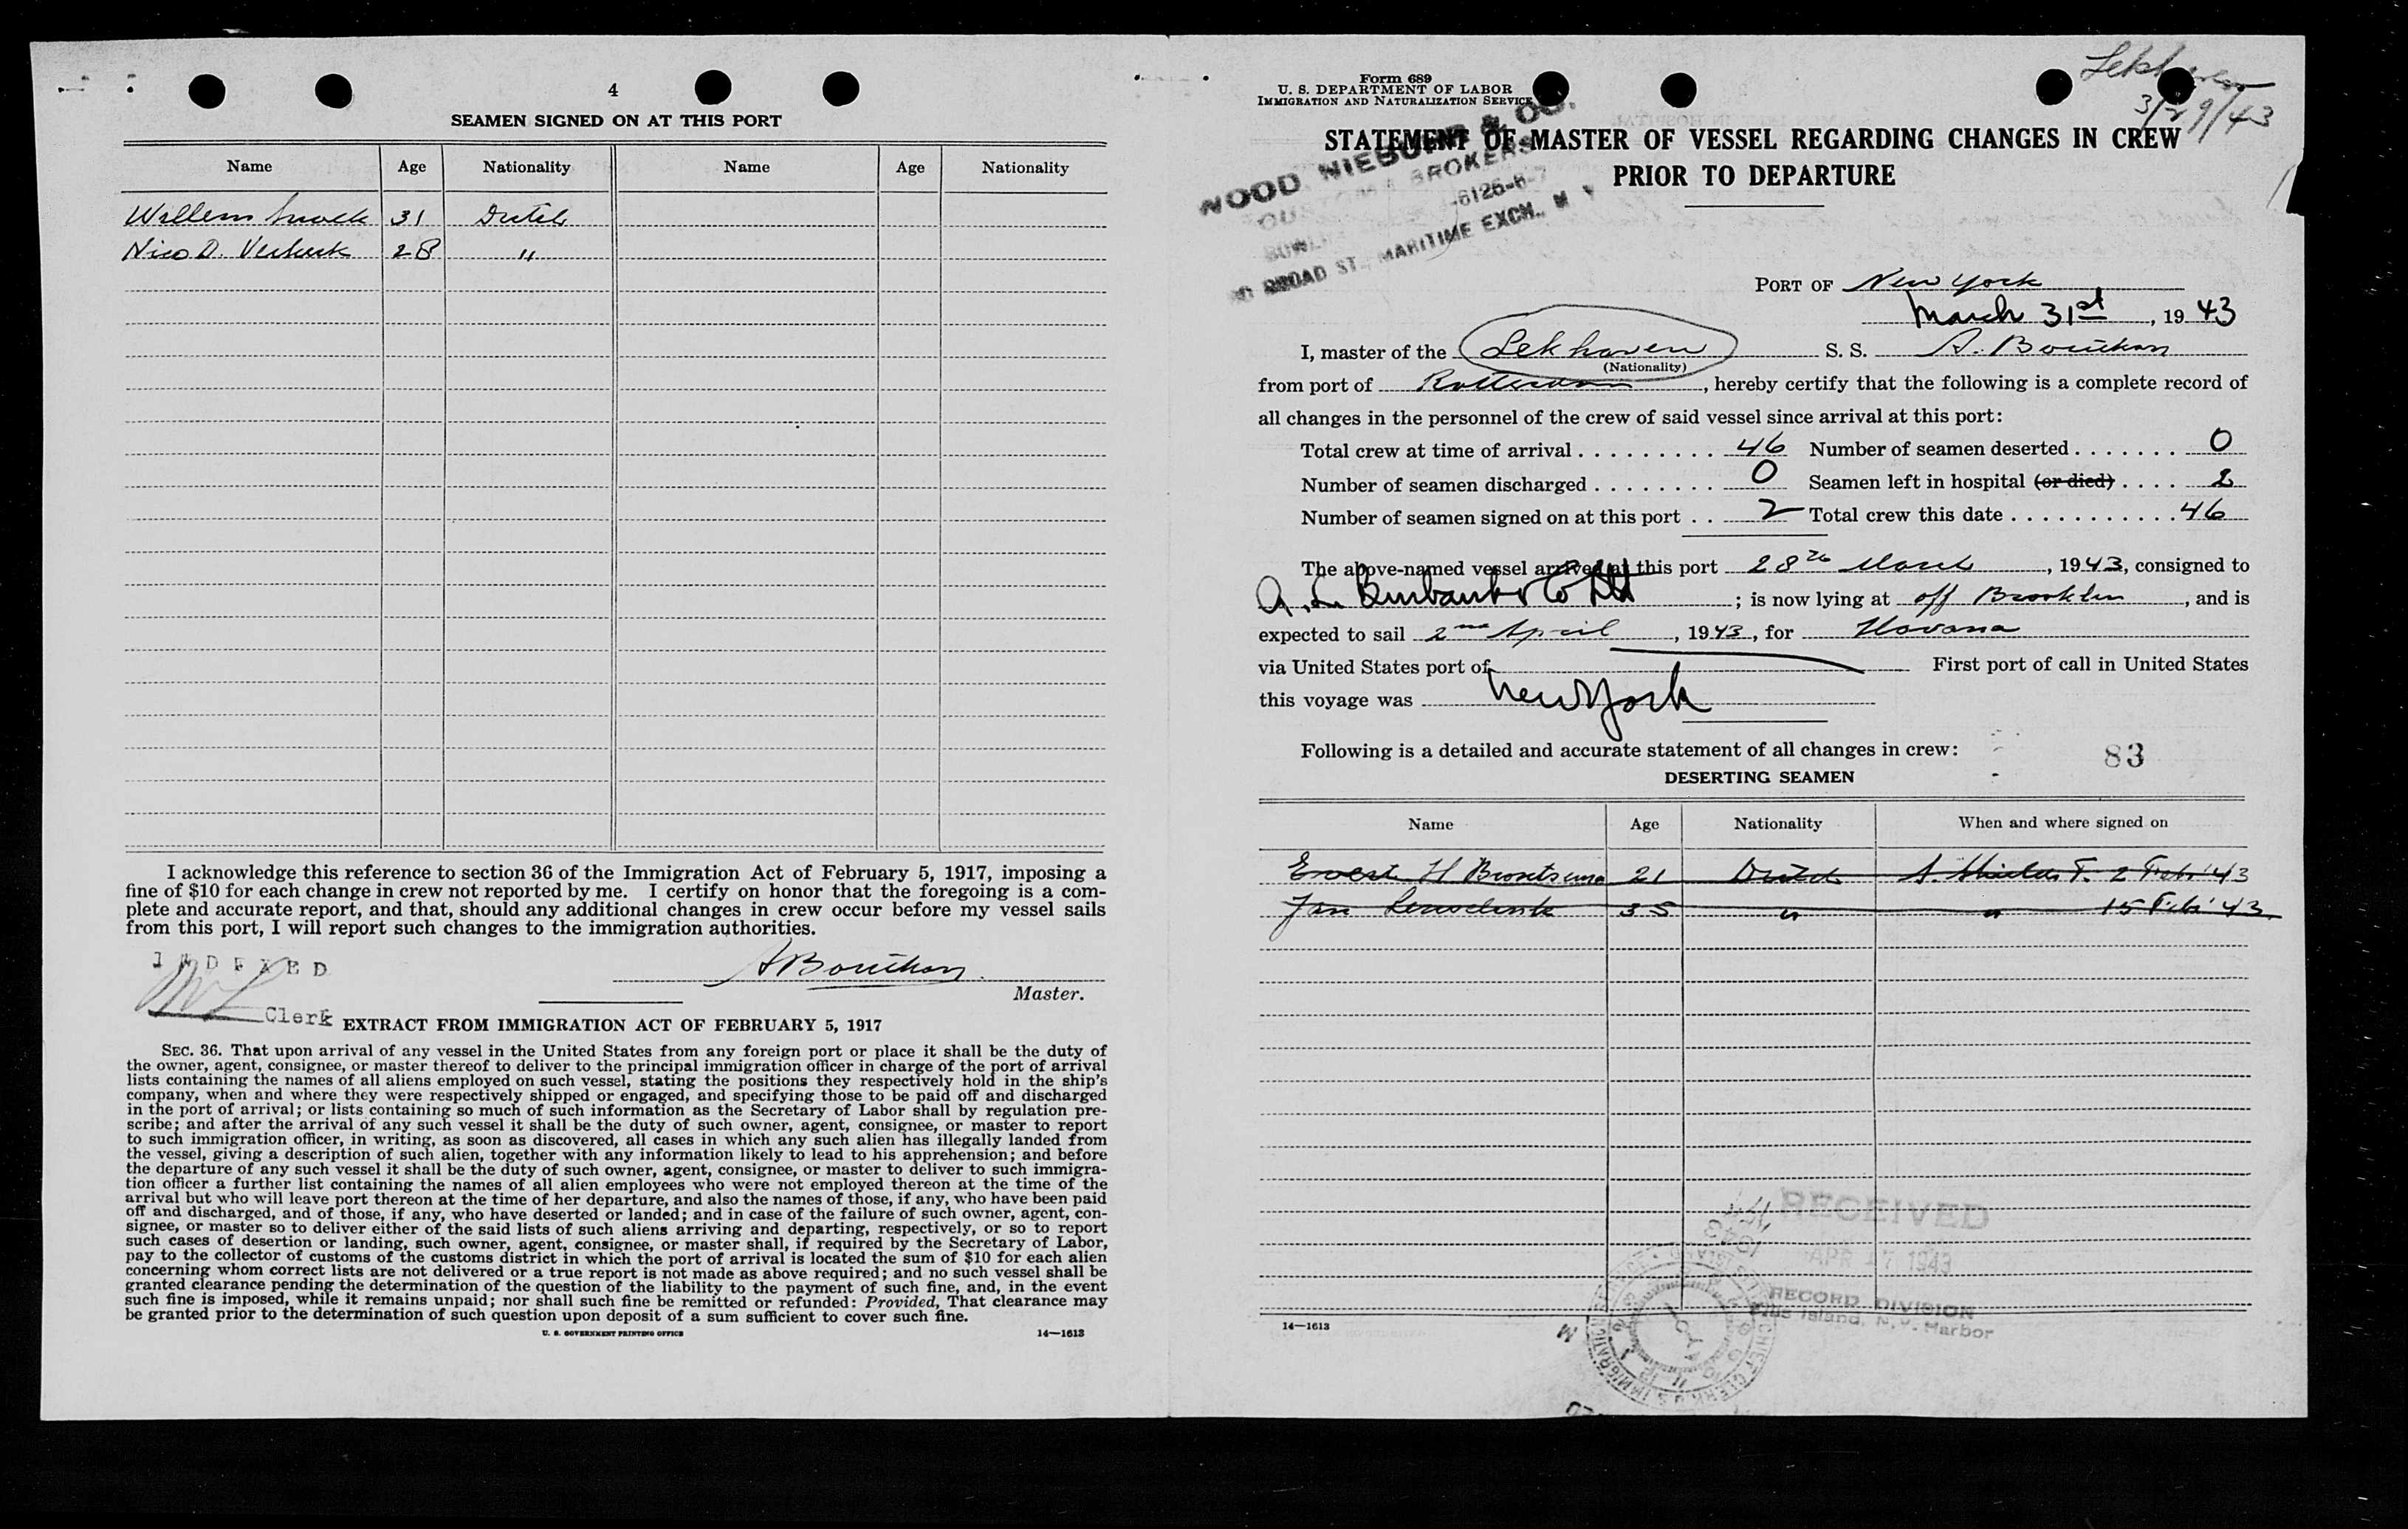 4
SEAMEN SIGNED ON AT THIS PORT
Name Age Nationality Name Age Nationality
Willem 31 Dutch
Nico D. 28 "
I acknowledge this reference to section 36 of the Immigration Act of February 5, 1917, imposing a
fine of $10 for each change in crew not reported by me. I certify on honor that the foregoing is a com-
plete and accurate report, and that, should any additional changes in crew occur before my vessel sails
from this port, I will report such changes to the immigration authorities.
INDEXED
Master.
Clerk
EXTRACT FROM IMMIGRATION ACT OF FEBRUARY 5, 1917
SEC. 36. That upon arrival of any vessel in the United States from any foreign port or place it shall be the duty of
the owner, agent, consignee, or master thereof to deliver to the principal immigration officer in charge of the port of arrival
lists containing the names of all aliens employed on such vessel, stating the positions they respectively hold in the ship's
company, when and where they were respectively shipped or engaged, and specifying those to be paid off and discharged
in the port of arrival; or lists containing so much of such information as the Secretary of Labor shall by regulation pre-
scribe; and after the arrival of any such vessel it shall be the duty of such owner, agent, consignee, or master to report
to such immigration officer, in writing, as soon as discovered, all cases in which any such alien has illegally landed from
the vessel, giving a description of such alien, together with any information likely to lead to his apprehension; and before
the departure of any such vessel it shall be the duty of such owner, agent, consignee, or master to deliver to such immigra-
tion officer a further list containing the names of all alien employees who were not employed thereon at the time of the
arrival but who will leave port thereon at the time of her departure, and also the names of those, if any, who have been paid
off and discharged, and of those, if any, who have deserted or landed; and in case of the failure of such owner, agent, con-
signee, or master so to deliver either of the said lists of such aliens arriving and departing, respectively, or so to report
such cases of desertion or landing, such owner, agent, consignee, or master shall, if required by the Secretary of Labor,
pay to the collector of customs of the customs district in which the port of arrival is located the sum of $10 for each alien
concerning whom correct lists are not delivered or a true report is not made as above required; and no such vessel shall be
granted clearance pending the determination of the question of the liability to the payment of such fine, and, in the event
such fine is imposed, while it remains unpaid; nor shall such fine be remitted or refunded: Provided, That clearance may
be granted prior to the determination of such question upon deposit of a sum sufficient to cover such fine.
U. S. GOVERNMENT PRINTING OFFICE 14—1613
Lekhaven
3/29/43
Form 689
U. S. DEPARTMENT OF LABOR
IMMIGRATION AND NATURALIZATION SERVICE
STATEMENT OF MASTER OF VESSEL REGARDING CHANGES IN CREW
PRIOR TO DEPARTURE
WOOD NIEBUHR & CO.
CUSTOMS BROKERS
BROAD ST., MARITIME EXCH., N Y
PORT OF New York
March 31st, 1943
I, master of the Lekhaven S. S. A.
(Nationality)
from port of Rotterdam, hereby certify that the following is a complete record of
all changes in the personnel of the crew of said vessel since arrival at this port:
Total crew at time of arrival . . . . . . . . . . 46 Number of seamen deserted . . . . . . . 0
Number of seamen discharged . . . . . . . . 0 Seamen left in hospital (or died) . . . . 2
Number of seamen signed on at this port . . 2 Total crew this date . . . . . . . . . . . 46
The above-named vessel arrived at this port 28th March, 1943, consigned to
A. L. Burbank & Co Ltd; is now lying at off Brooklin, and is
expected to sail 2nd April, 1943, for Havana
via United States port of First port of call in United States
this voyage was New York
Following is a detailed and accurate statement of all changes in crew:
83
DESERTING SEAMEN
Name Age Nationality When and where signed on
Evert H 21 Dutch 2 Feb '43
Jan 35 " " 15 Feb '43
RECEIVED
APR 17 1943
RECORD DIVISION
Ellis Island, N.Y. Harbor
14—1613